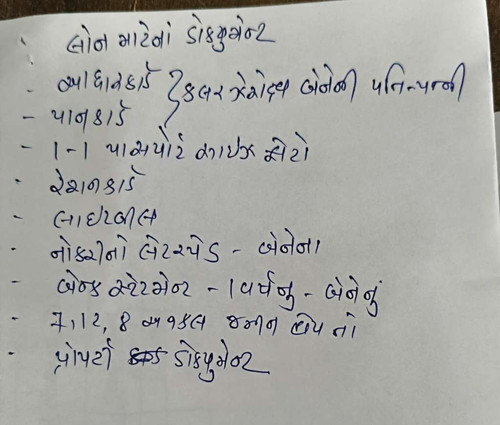 લોન માટેનાં ડોક્યુમેન્ટ
- આધારકાર્ડ } કલર ઝેરોક્ષ બંનેની પતિ-પત્ની
- પાનકાર્ડ
- 1-1 પાસપોર્ટ સાઇઝ ફોટો
- રેશનકાર્ડ
- લાઇટબીલ
- નોકરીનો લેટરપેડ - બંનેના
- બેન્ક સ્ટેટમેન્ટ - 1 વર્ષનુ - બંનેનું
- 7, 12, 8 અ નકલ જમીન હોય તો
- પ્રોપર્ટી ડોક્યુમેન્ટ